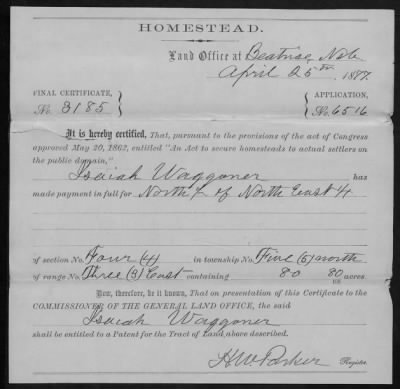 HOMESTEAD.
Land Office at Beatrice, Neb
April 25th, 1887.
FINAL CERTIFICATE, APPLICATION,
No. 3185 No. 6516
It is hereby certified, That, pursuant to the provisions of the act of Congress
approved May 20, 1862, entitled "An Act to secure homesteads to actual settlers on
the public domain,"
Isaiah Waggoner has
made payment in full for North ½ of North East ¼
of section No. Four (4) in township No. Five (5) north
of range No. Three (3) East containing 80 80 acres.
Now, therefore, be it known, That on presentation of this Certificate to the
COMMISSIONER OF THE GENERAL LAND OFFICE, the said
Isaiah Waggoner
shall be entitled to a Patent for the Tract of Land above described.
H. W. Parker Register.